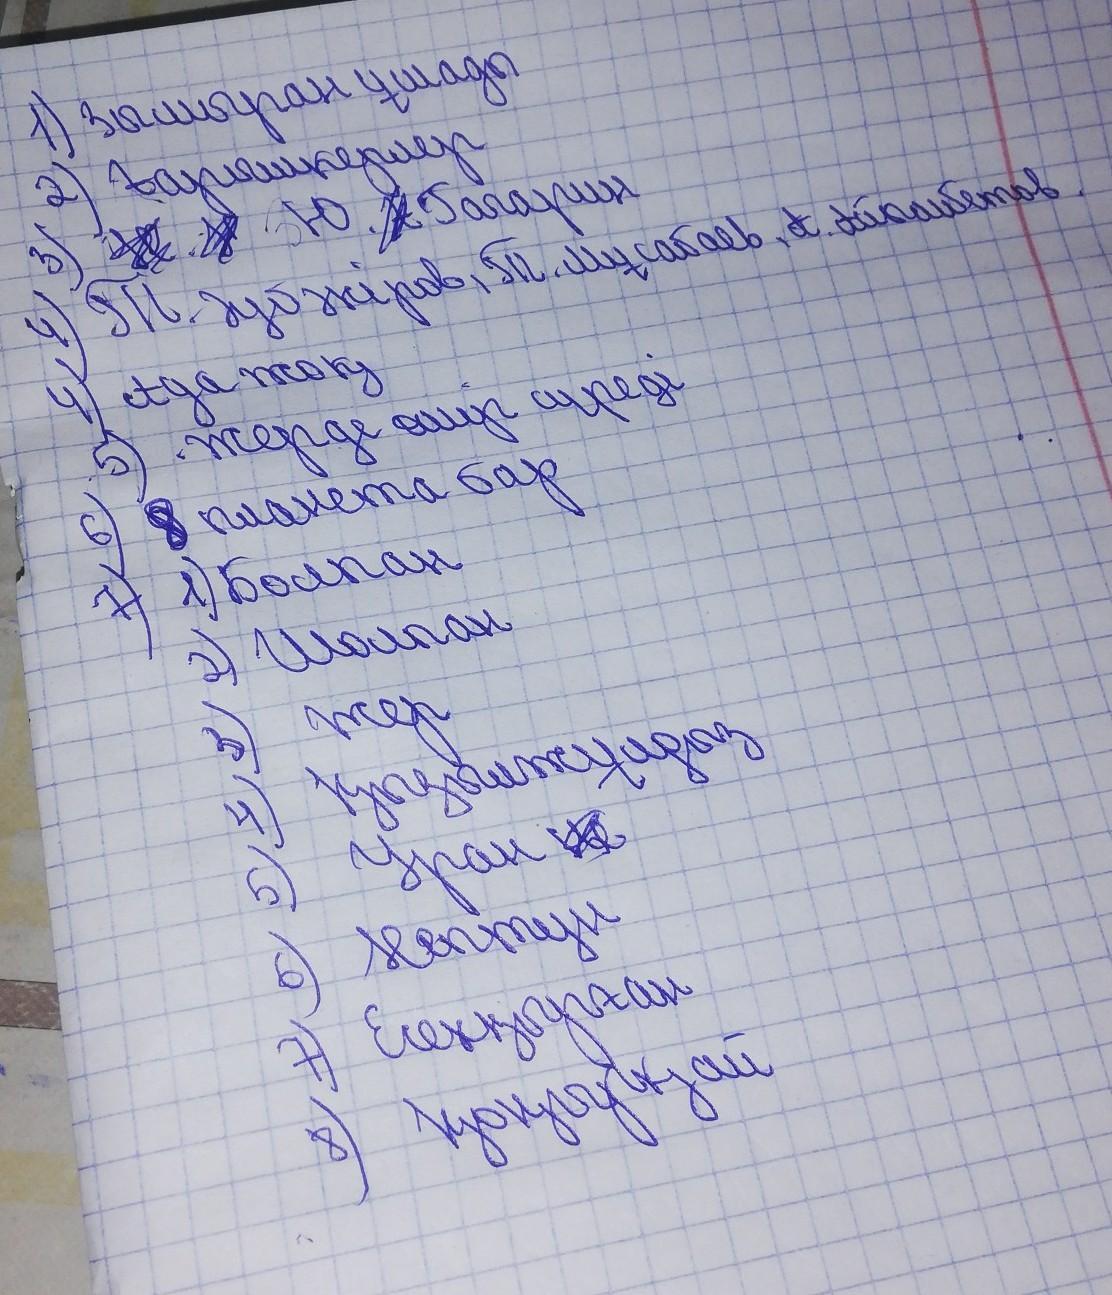 1) Зымыран ұшады
2) Ғарышкерлер
3) Ю. Гагарин
4) Т. Әубәкіров, Т. Мұсабаев, А. Айымбетов.
4) Ауа жоқ
5) Жерде өмір сүреді
6) 8 планета бар
7) 1) Болпан
2) Шолпан
3) Жер
4) Қызылжұлдыз
5) Уран
6) Нептун
7) Есекқырған
8) Қоңырқай